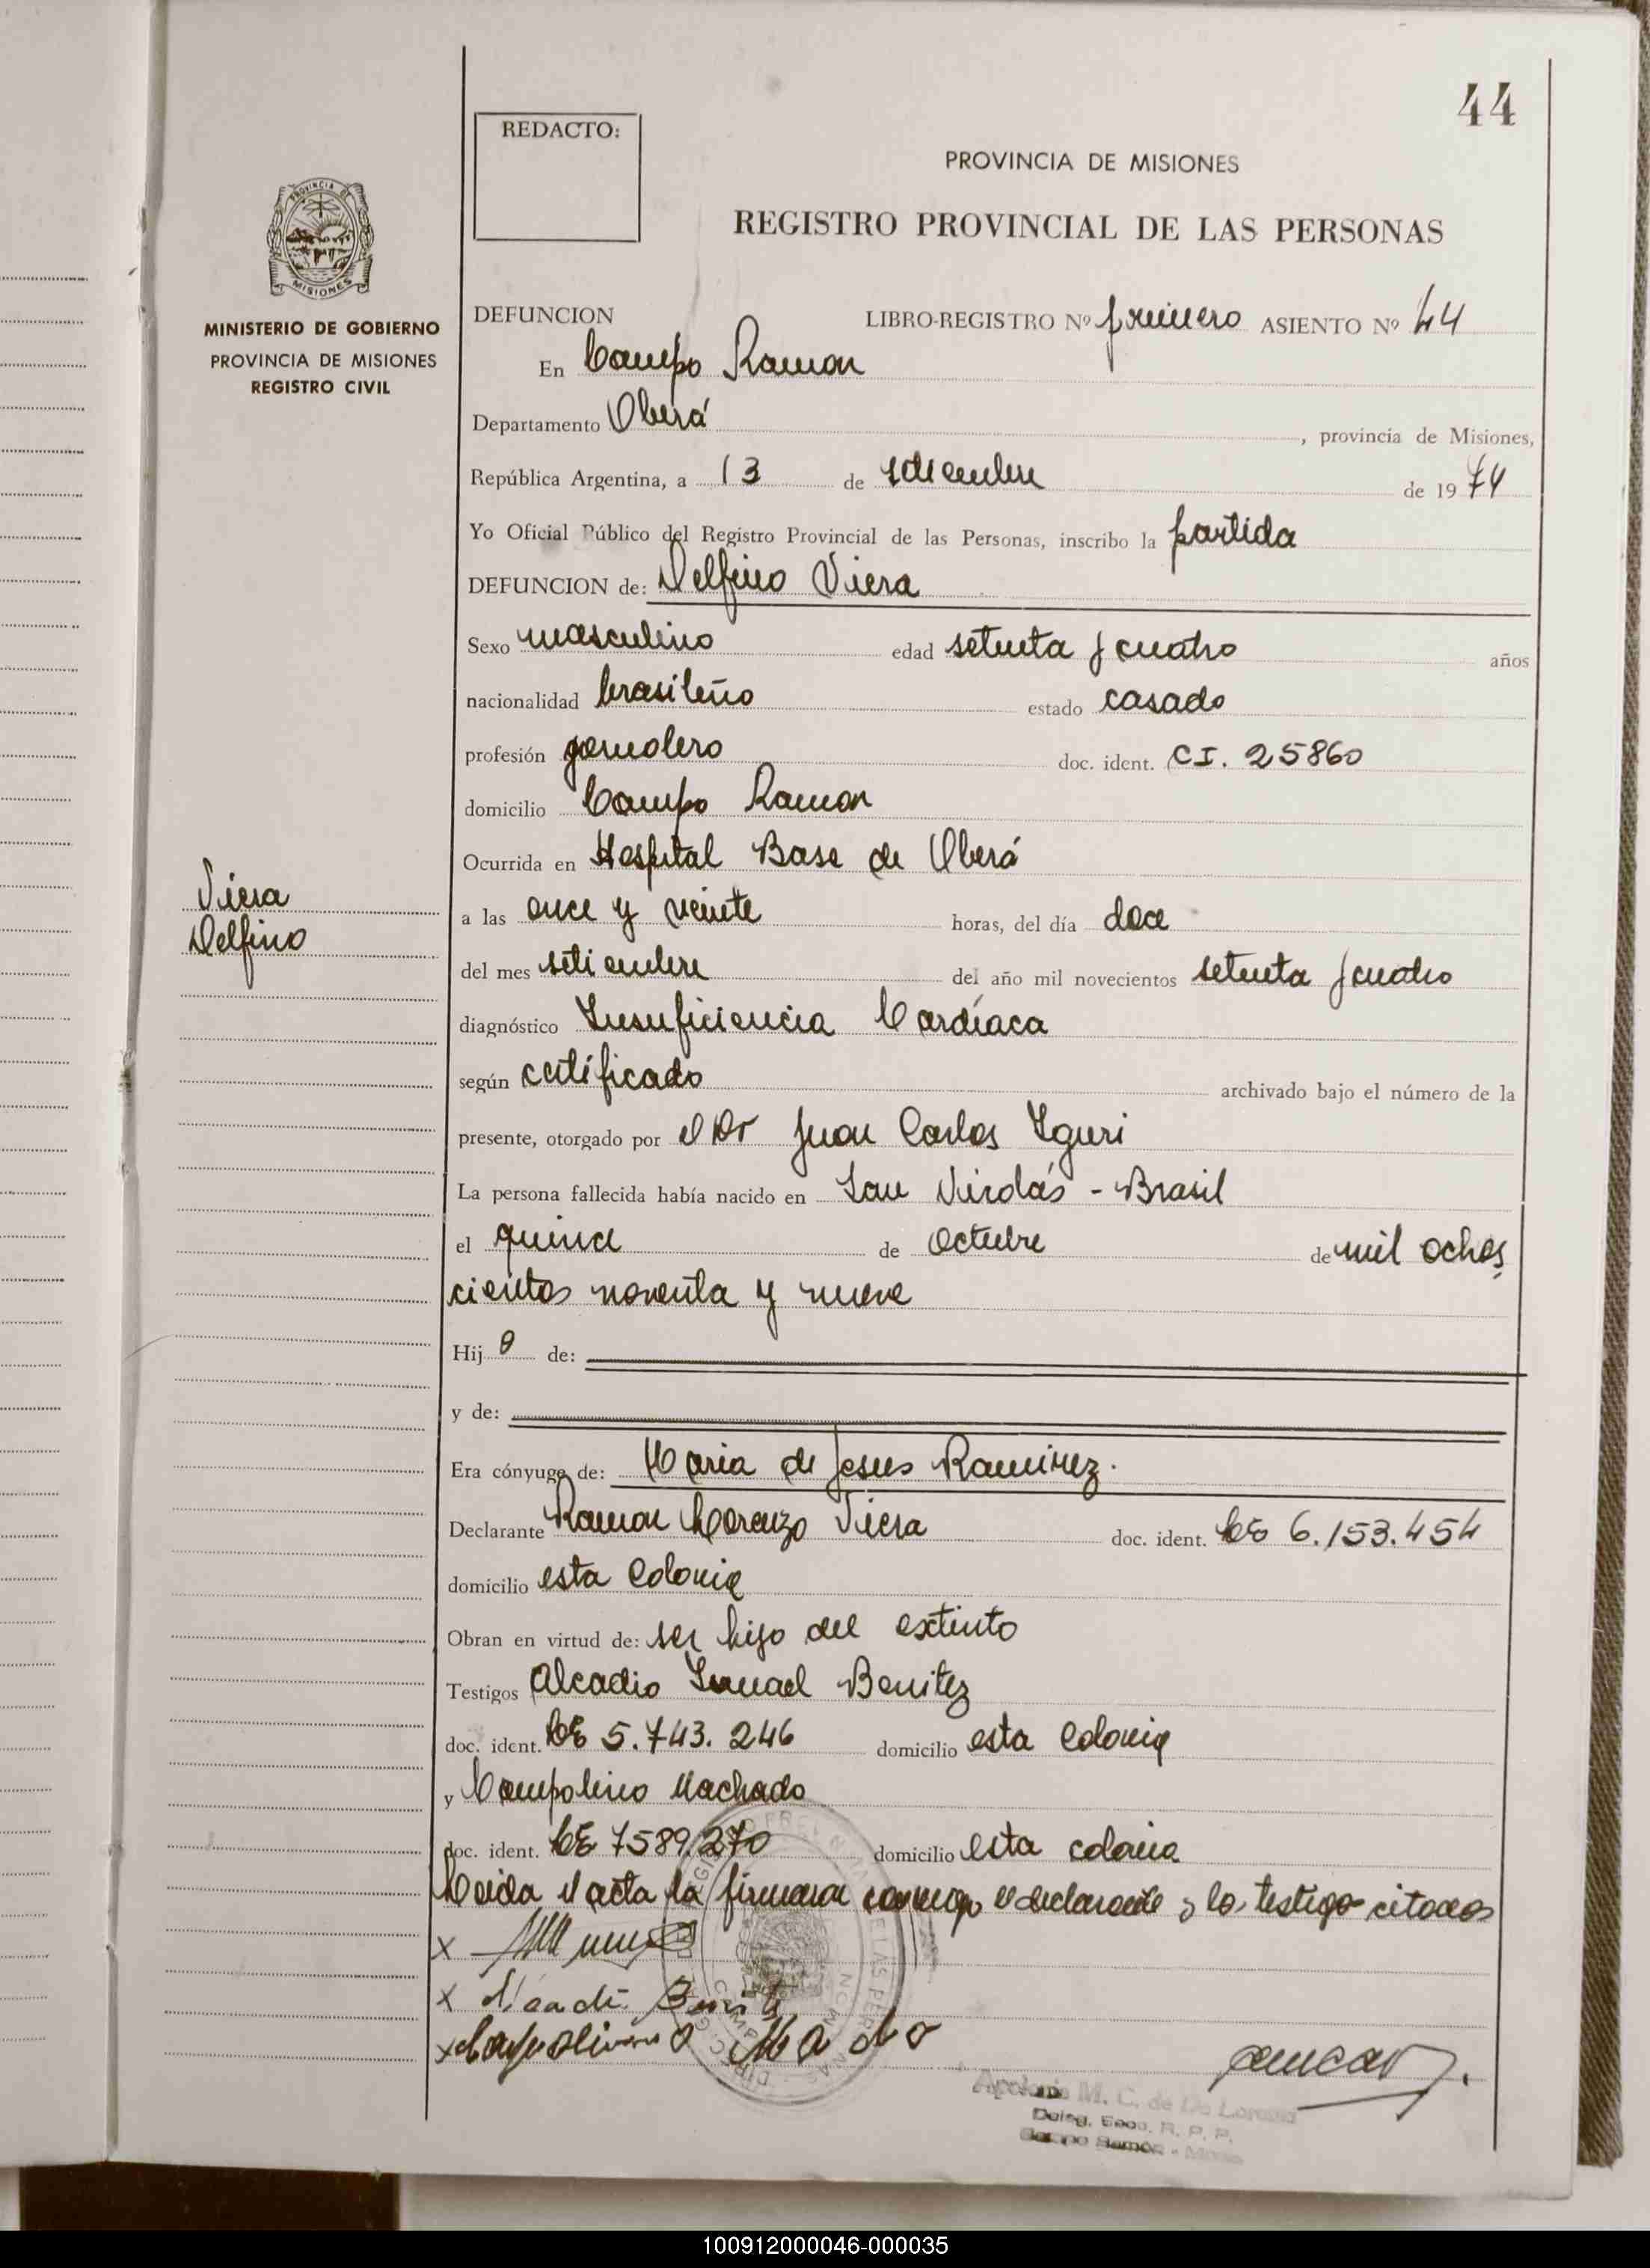 44
REDACTO:
PROVINCIA DE MISIONES
REGISTRO PROVINCIAL DE LAS PERSONAS
PROVINCIA DE
MISIONES
MINISTERIO DE GOBIERNO
PROVINCIA DE MISIONES
REGISTRO CIVIL
DEFUNCION LIBRO-REGISTRO Nº primero ASIENTO Nº 44
En Campo Ramon
Departamento Oberá, provincia de Misiones,
República Argentina, a 13 de setiembre de 1974
Yo Oficial Público del Registro Provincial de las Personas, inscribo la partida
DEFUNCION de: Delfino Viera
Sexo masculino edad setenta y cuatro años
nacionalidad brasileño estado casado
profesión jornalero doc. ident. CI. 25860
domicilio Campo Ramon
Ocurrida en Hospital Base de Oberá
Viera
Delfino
a las once y veinte horas, del día doce
del mes setiembre del año mil novecientos setenta y cuatro
diagnóstico Insuficiencia Cardíaca
según certificado archivado bajo el número de la
presente, otorgado por el Dr Juan Carlos Yguri
La persona fallecida había nacido en San - Brasil
el quince de octubre de mil ochos
cientos noventa y nueve
Hij o de:
y de:
Era cónyuge de: Maria de Jesus Ramirez.
Declarante Ramon Lorenzo Viera doc. ident. LE 6.153.454
domicilio esta Colonia
Obran en virtud de: ser hijo del extinto
Testigos Alcadio Ismael Benitez
doc. ident. LE 5.743.246 domicilio esta Colonia
y Campolino Machado
doc. ident. LE 7589.270 domicilio esta colonia
Leida el acta la firmaron conmigo el declarante y los testigos citados
x
x Benitez
x
Apolonia M. C. de De Lorenzo
Deleg. Secc. R. P. P.
Campo Ramón - Mnes
100912000046-000035